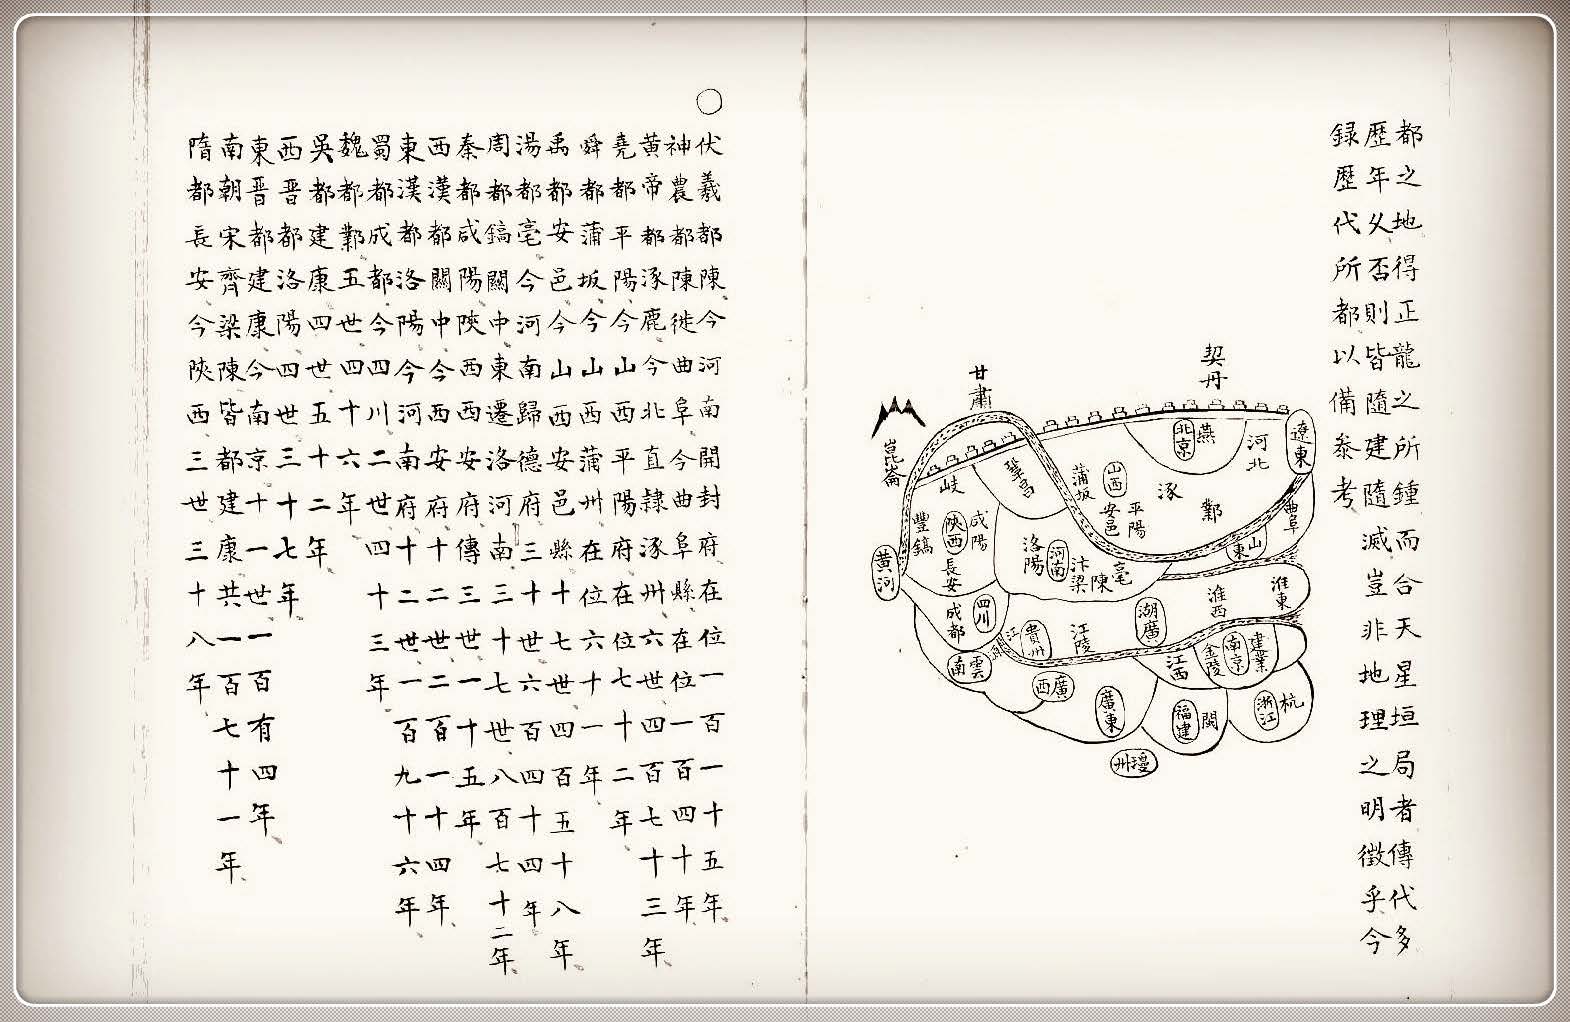 都之地得正龍之所鍾而合天星垣局者傳代多
歷年久否則皆隨建隨滅豈非地理之明徵乎今
録歷代所都以備叅考
契丹
甘肅
崑崙
遼東
河北
燕
北京
曲阜
山東
鄴
涿
平陽
山西
安邑
蒲坂
鞏昌
岐
咸陽
陝西
長安
豐鎬
黄河
洛陽
河南
汴梁
陳
亳
淮東
淮西
湖廣
江陵
貴州
四川
成都
雲南
建業
南京
金陵
江西
廣西
廣東
閩
福建
杭
浙江
瓊州
○
伏羲都陳今河南開封府在位一百一十五年
神農都陳徙曲阜今曲阜縣在位一百四十年
黄帝都涿鹿今北直隸涿州六世四百七十三年
堯都平陽今山西平陽府在位七十二年
舜都蒲坂今山西蒲州在位六十一年
禹都安邑今山西安邑縣十七世四百五十八年
湯都亳今河南歸德府三十世六百四十四年
周都鎬關中東遷洛河南三十七世八百七十二年
秦都咸陽陝西西安府傳三世一十五年
西漢都關中今西安府十二世二百一十四年
東漢都洛陽今河南府十二世一百九十六年
蜀都成都今四川二世四十三年
魏都鄴五世四十六年
吳都建康四世五十二年
西晋都洛陽四世三十七年
東晋都建康今南京十一世一百有四年
南朝宋齊梁陳皆都建康共一百七十一年
隋都長安今陝西三世三十八年